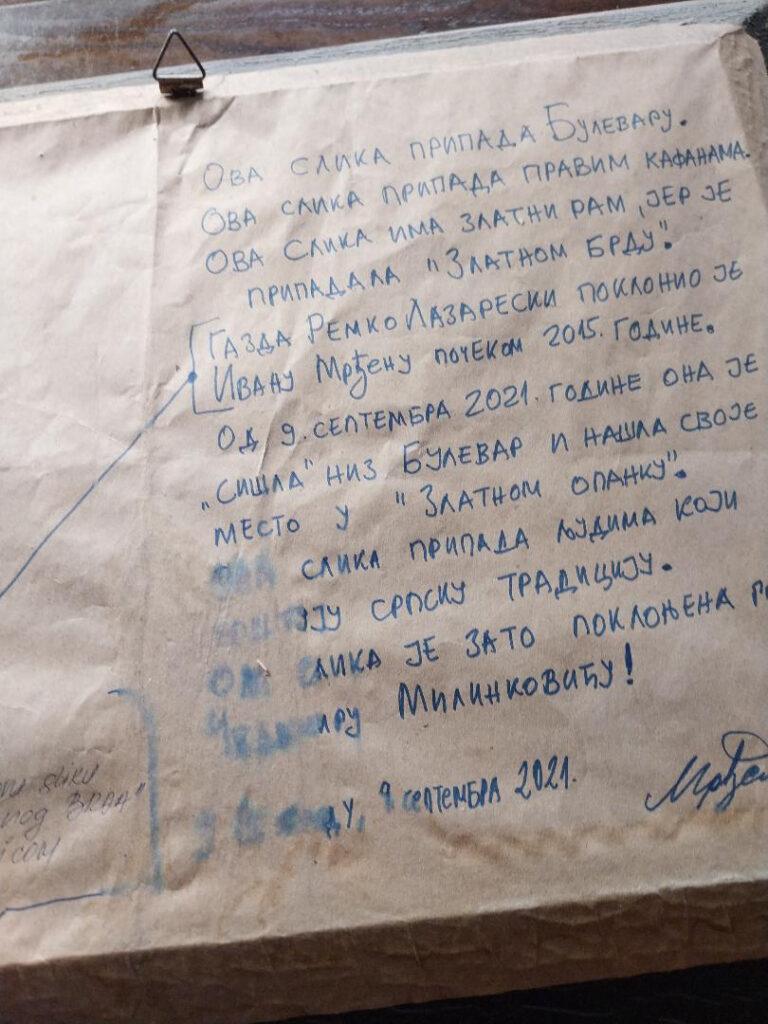 Ова слика припада Булевару.
Ова слика припада правим кафанама.
Ова слика има златни рам, јер је
припадала "Златном брду".
Газда Ремко Лазарески поклонио је
Ивану Мрђену почеком 2015. године.
Од 9. септембра 2021. године она је
„сишла" низ Булевар и нашла своје
место у "Златном опанку".
Ова слика припада људима који
поштују српску традицију.
Ова слика је зато поклоњена
Милинковићу!
9 септембра 2021.